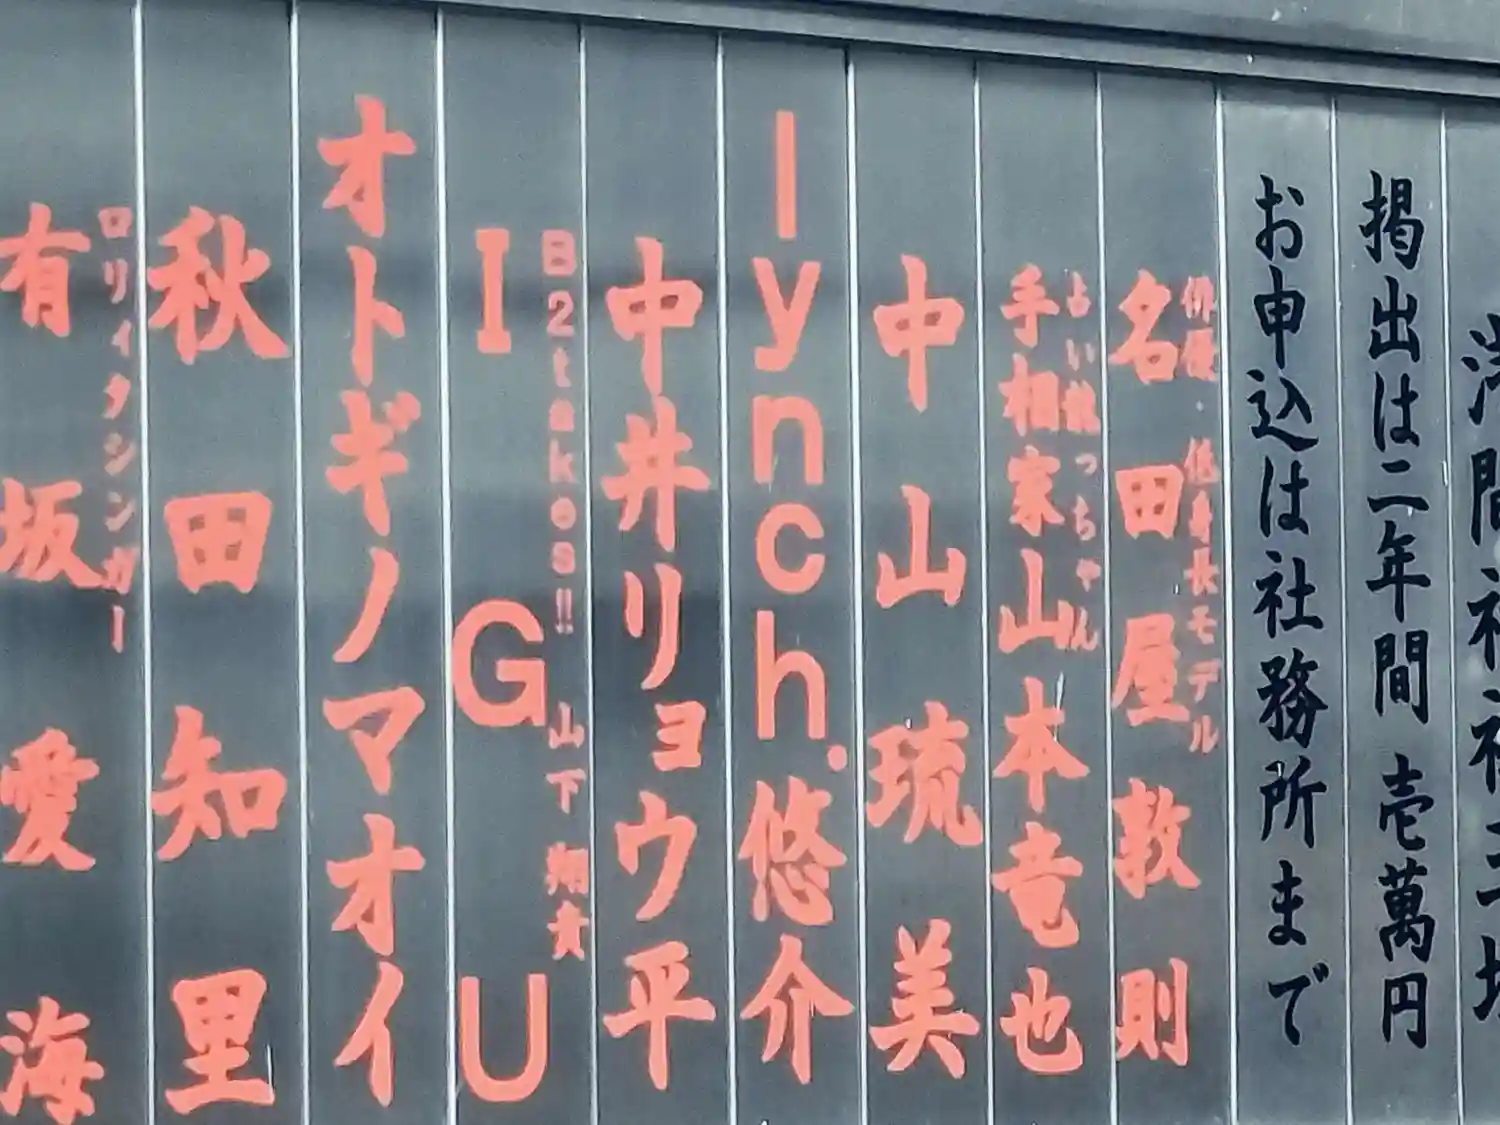 掲出は二年間 壱萬円
お申込は社務所まで
俳優・低身長モデル
名田屋敦則
占い龍っちゃん
手相家山本竜也
中山琉美
lynch.悠介
中井リョウ平
B2takes!! 山下翔貴
IGU
オトギノマオイ
秋田知里
ロリィタシンガー
有坂愛海